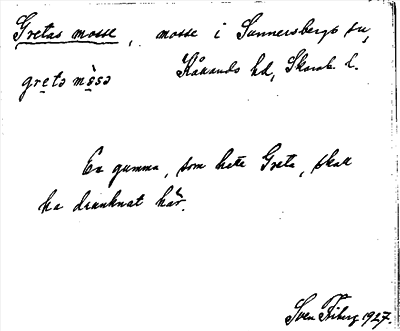 Gretas mosse, mosse i Sunnersbergs sn,
Kållands hd, Skarab. l.
gretə mosə
En gumma, som hette Greta, skall
ha drunknat här.
Sven Friberg 1927.